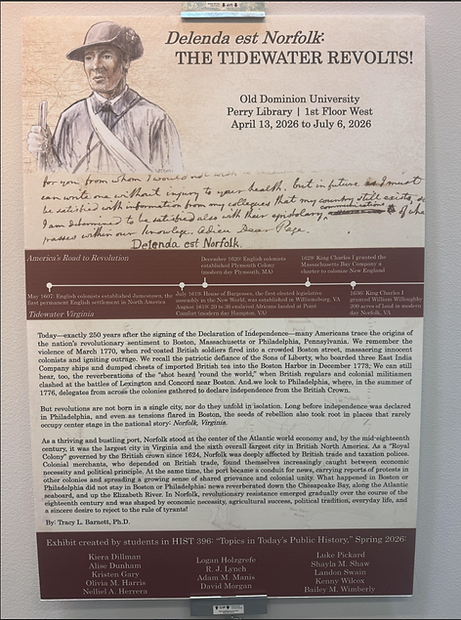 Delenda est Norfolk:
THE TIDEWATER REVOLTS!
Old Dominion University
Perry Library | 1st Floor West
April 13, 2026 to July 6, 2026
for you, from whom I would not wish
can write one without injury to your health, but in future as I must
be satisfied with information from my collegues that my country still exists, so
I am determined to be satisfied also with their epistolary
passes within our knowlege. Adieu Dear Page.
Delenda est Norfolk.
America's Road to Revolution
December 1620: English colonists
established Plymouth Colony
(modern day Plymouth, MA)
1629: King Charles I granted the
Massachusetts Bay Company a
charter to colonize New England
May 1607: English colonists established Jamestown, the
first permanent English settlement in North America
July 1619: House of Burgesses, the first elected legislative
assembly in the New World, was established in Williamsburg, VA
August 1619: 20 to 30 enslaved Africans landed at Point
Comfort (modern day Hampton, VA)
1636: King Charles I
granted William Willoughby
200 acres of land in modern
day Norfolk, VA
Tidewater Virginia
Today—exactly 250 years after the signing of the Declaration of Independence—many Americans trace the origins of
the nation's revolutionary sentiment to Boston, Massachusetts or Philadelphia, Pennsylvania. We remember the
violence of March 1770, when red-coated British soldiers fired into a crowded Boston street, massacring innocent
colonists and igniting outrage. We recall the patriotic defiance of the Sons of Liberty, who boarded three East India
Company ships and dumped chests of imported British tea into the Boston Harbor in December 1773; We can still
hear, too, the reverberations of the "shot heard 'round the world," when British regulars and colonial militiamen
clashed at the battles of Lexington and Concord near Boston. And we look to Philadelphia, where, in the summer of
1776, delegates from across the colonies gathered to declare independence from the British Crown.
But revolutions are not born in a single city, nor do they unfold in isolation. Long before independence was declared
in Philadelphia, and even as tensions flared in Boston, the seeds of rebellion also took root in places that rarely
occupy center stage in the national story: Norfolk, Virginia.
As a thriving and bustling port, Norfolk stood at the center of the Atlantic world economy and, by the mid-eighteenth
century, it was the largest city in Virginia and the sixth overall largest city in British North America. As a "Royal
Colony" governed by the British crown since 1624, Norfolk was deeply affected by British trade and taxation policies.
Colonial merchants, who depended on British trade, found themselves increasingly caught between economic
necessity and political principle. At the same time, the port became a conduit for news, carrying reports of protests
in other colonies and spreading a growing sense of shared grievance and colonial unity. What happened in Boston or
Philadelphia did not stay in Boston or Philadelphia: news reverberated down the Chesapeake Bay, along the Atlantic
seaboard, and up the Elizabeth River. In Norfolk, revolutionary resistance emerged gradually over the course of the
eighteenth century and was shaped by economic necessity, agricultural success, political tradition, everyday life, and
a sincere desire to reject the rule of tyrants!
By: Tracy L. Barnett, Ph.D.
Exhibit created by students in HIST 396: "Topics in Today's Public History," Spring 2026:
Kiera Dillman
Alise Dunham
Kristen Gary
Olivia M. Harris
Nelhel A. Herrera
Logan Holzgrefe
R. J. Lynch
Adam M. Manis
David Morgan
Luke Pickard
Shayla M. Shaw
Landon Swain
Kenny Wilcox
Bailey M. Wimberly